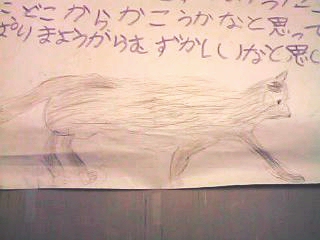 こどこからかこうかなと思って
ぱりまようからむずかしいなと思し